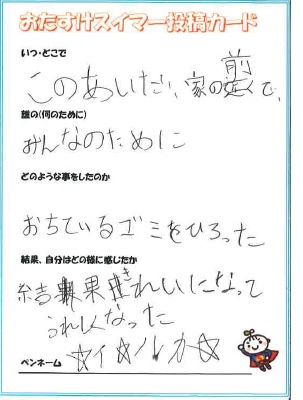 おたすけスイマー投稿カード
いつ・どこで
このあいだ、家の前で、
誰の(何のために)
みんなのために
どのような事をしたのか
おちているゴミをひろった
結果、自分はどの様に感じたか
結果きれいになって
うれしくなった
ペンネーム ☆イ☆ルカ☆